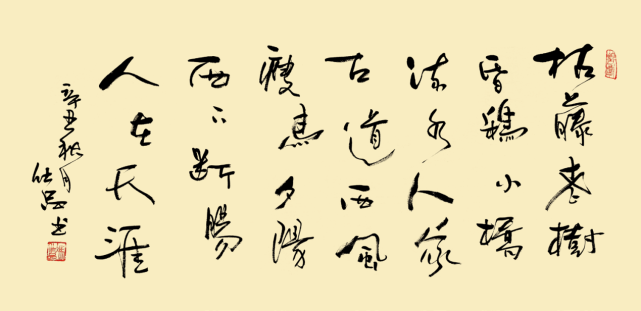 枯藤老樹
昏鴉小橋
流水人家
古道西風
瘦馬夕陽
西下断腸
人在天涯
辛丑秋月
书